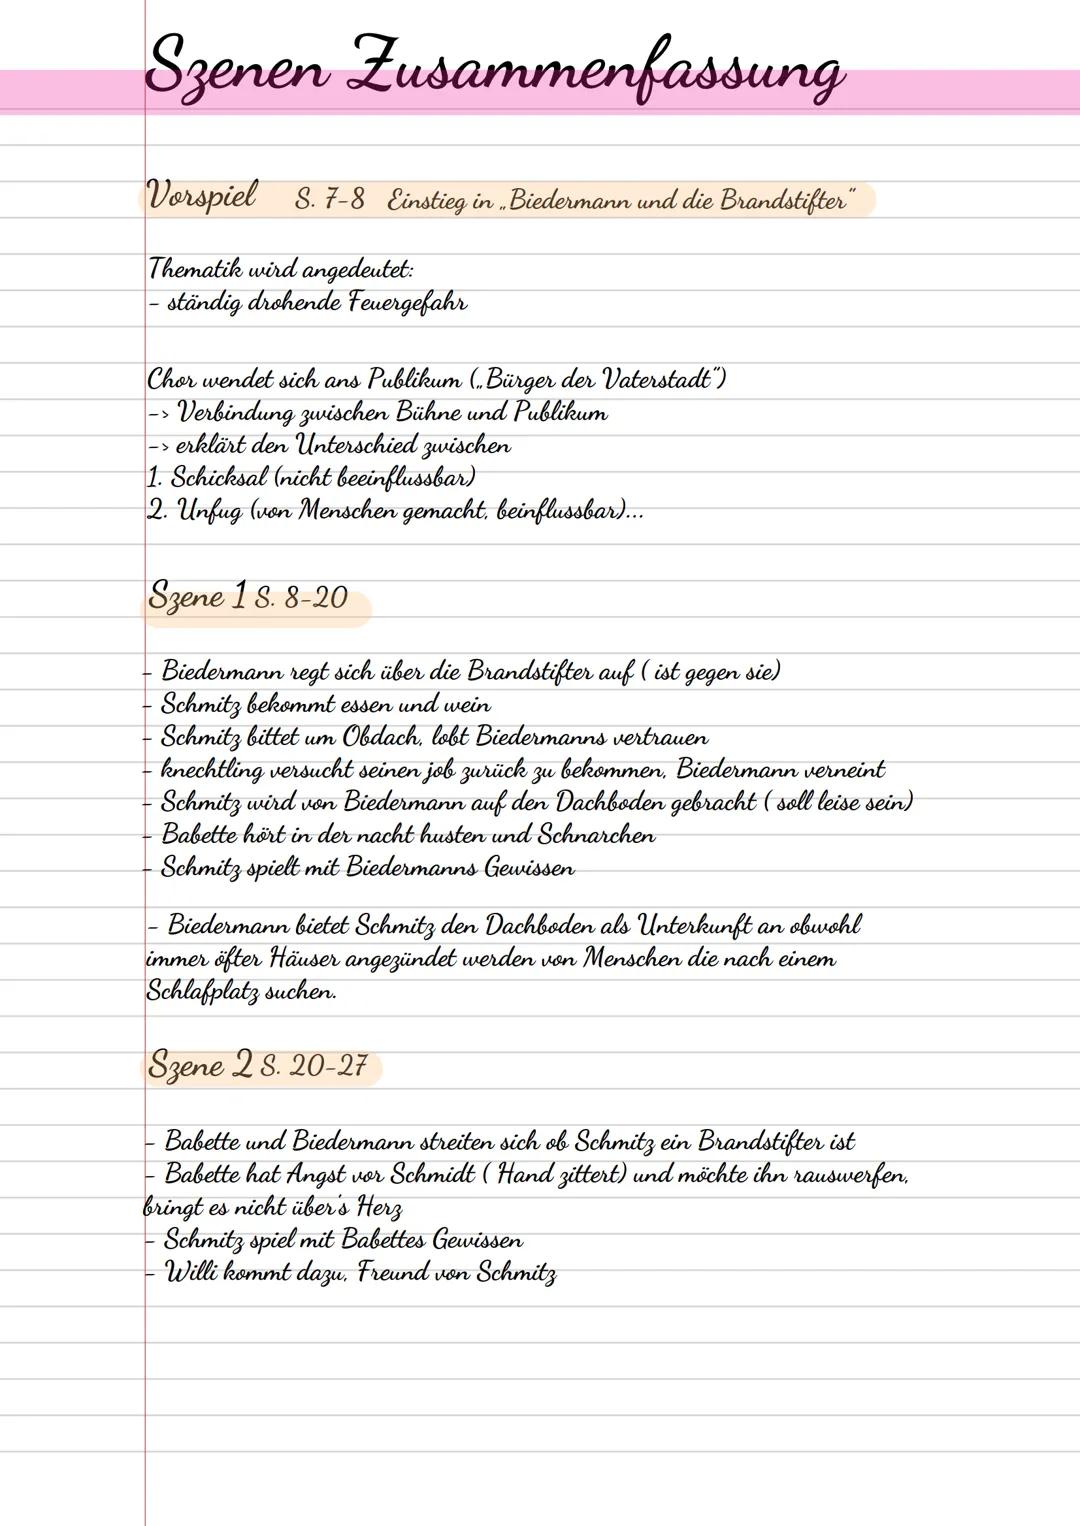 Szenen Zusammenfassung
Vorspiel S. 7-8 Einstieg in „Biedermann und die Brandstifter"
Thematik wird angedeutet:
- ständig drohende Feuergefahr
Chor wendet sich ans Publikum („Bürger der Vaterstadt")
-> Verbindung zwischen Bühne und Publikum
-> erklärt den Unterschied zwischen
1. Schicksal (nicht beeinflussbar)
2. Unfug (von Menschen gemacht, beinflussbar)...
Szene 1 S. 8-20
- Biedermann regt sich über die Brandstifter auf ( ist gegen sie)
- Schmitz bekommt essen und wein
- Schmitz bittet um Obdach, lobt Biedermanns vertrauen
- knechtling versucht seinen job zurück zu bekommen, Biedermann verneint
- Schmitz wird von Biedermann auf den Dachboden gebracht ( soll leise sein)
- Babette hört in der nacht husten und Schnarchen
- Schmitz spielt mit Biedermanns Gewissen
- Biedermann bietet Schmitz den Dachboden als Unterkunft an obwohl
immer öfter Häuser angezündet werden von Menschen die nach einem
Schlafplatz suchen.
Szene 2 S. 20-27
- Babette und Biedermann streiten sich ob Schmitz ein Brandstifter ist
- Babette hat Angst vor Schmidt ( Hand zittert) und möchte ihn rauswerfen,
bringt es nicht über's Herz
- Schmitz spiel mit Babettes Gewissen
- Willi kommt dazu, Freund von Schmitz